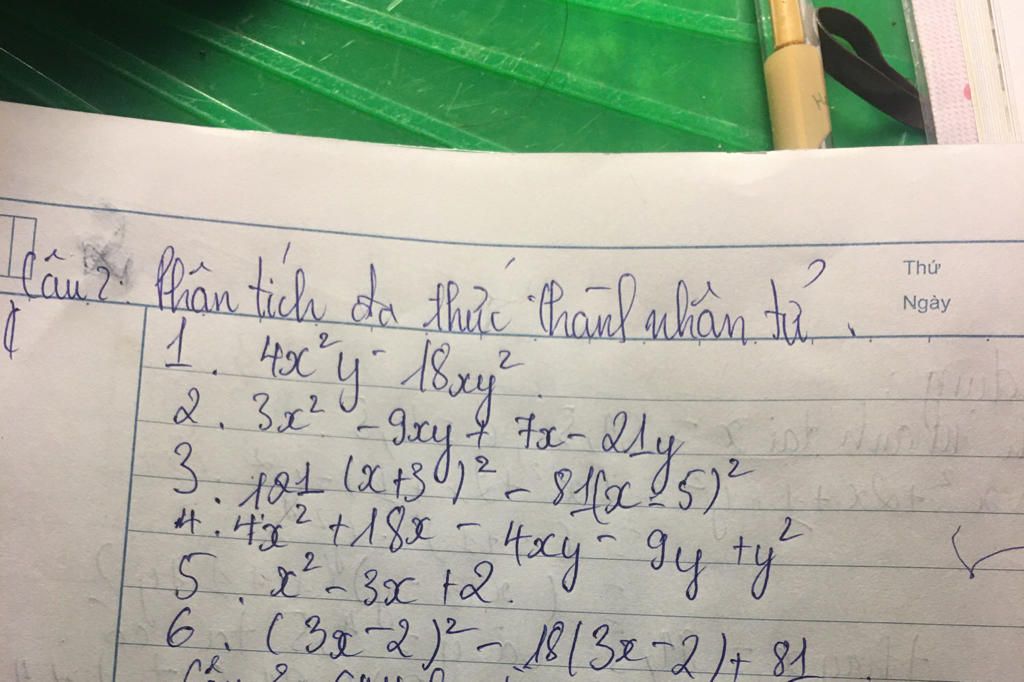 Thứ
Ngày
Câu 2. Phân tích đa thức thành nhân tử.
1. 4x²y - 18xy²
2. 3x² - 9xy + 7x - 21y
3. 121 (x+3)² - 81(x-5)²
4. 4x² + 18x - 4xy - 9y + y²
5. x² - 3x + 2.
6. (3x-2)² - 18(3x-2) + 81